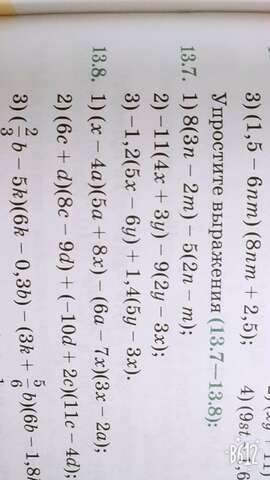 3) (1,5 − 6nm) (8nm + 2,5);
4) (9st
Упростите выражения (13.7—13.8):
13.7. 1) 8(3n − 2m) − 5(2n − m);
2) −11(4x + 3y) − 9(2y − 3x);
3) −1,2(5x − 6y) + 1,4(5y − 3x).
13.8. 1) (x − 4a)(5a + 8x) − (6a − 7x)(3x − 2a);
2) (6c + d)(8c − 9d) + (−10d + 2c)(11c − 4d);
3) (2/3 b − 5k)(6k − 0,3b) − (3k + 5/6 b)(6b − 1,8k
B612